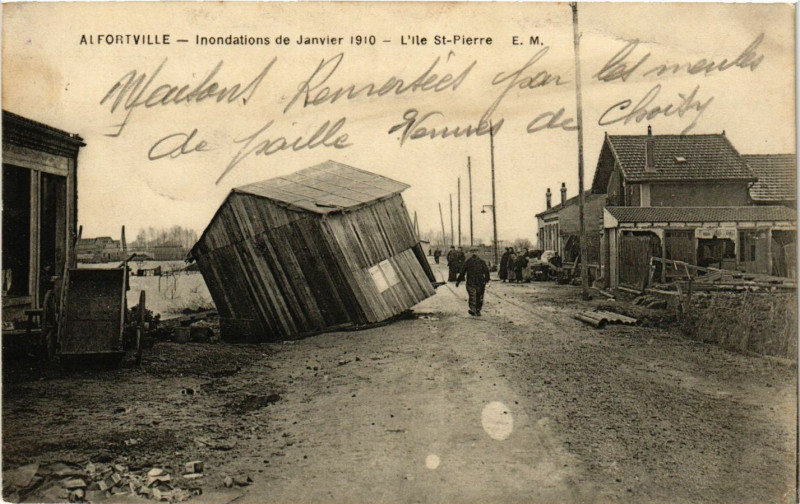 ALFORTVILLE — Inondations de Janvier 1910 — L'Ile St-Pierre E. M.
Maisons Renversées par les meules
de paille Venues de Choisy